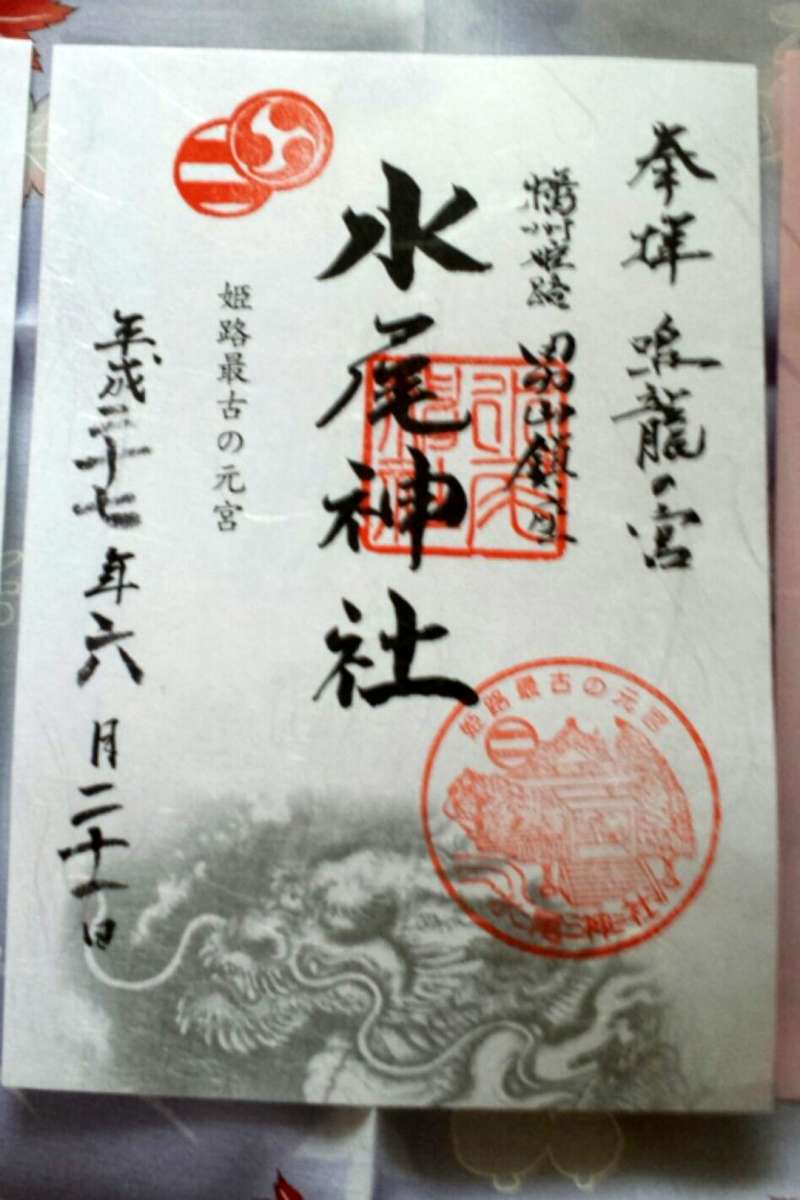 奉拝 鳴龍の宮
播州姫路 男山鎮座
水尾神社
姫路最古の元宮
平成二十七年六月二十一日
姫路最古の元宮
水尾神社